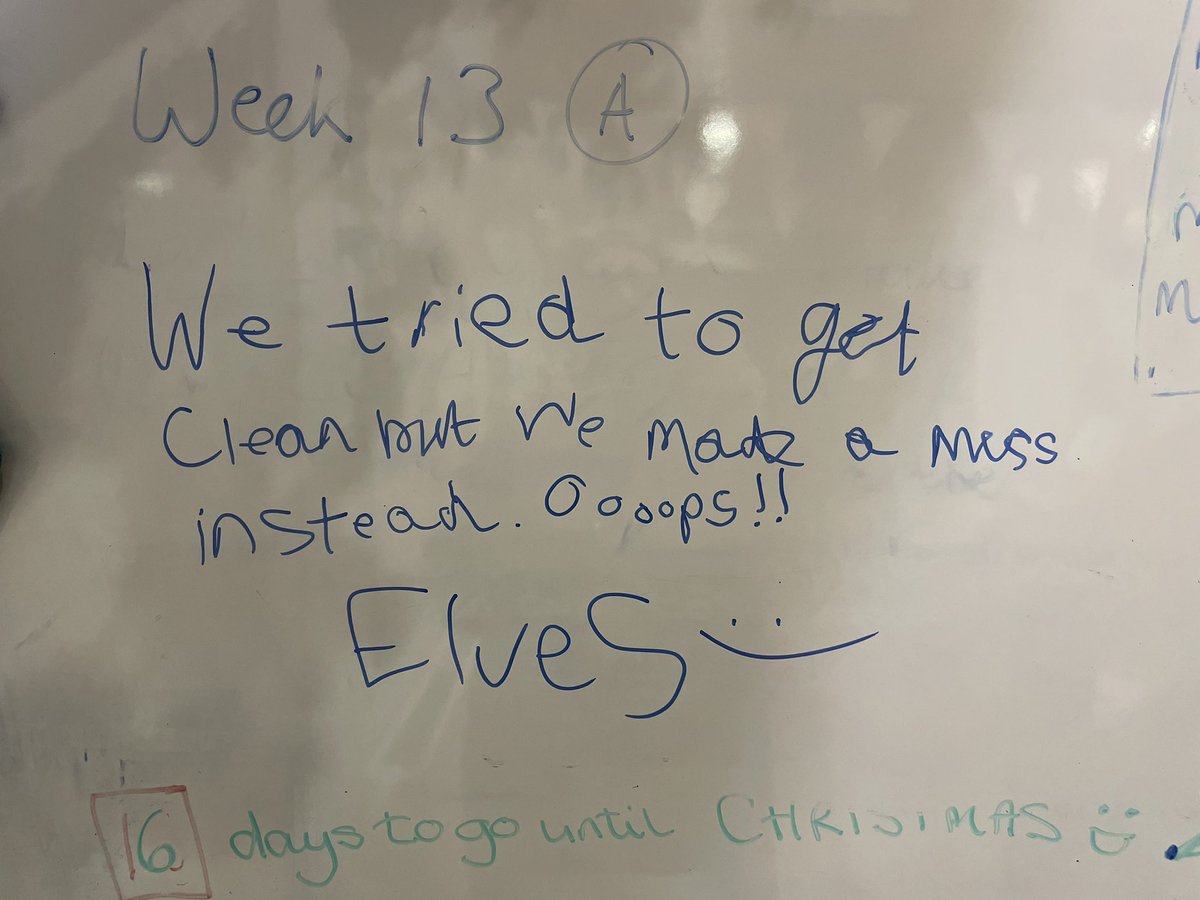 Week 13 A
We tried to get
Clean but we made a mess
instead. Oooops!!
Elves
16 days to go until CHRISTMAS